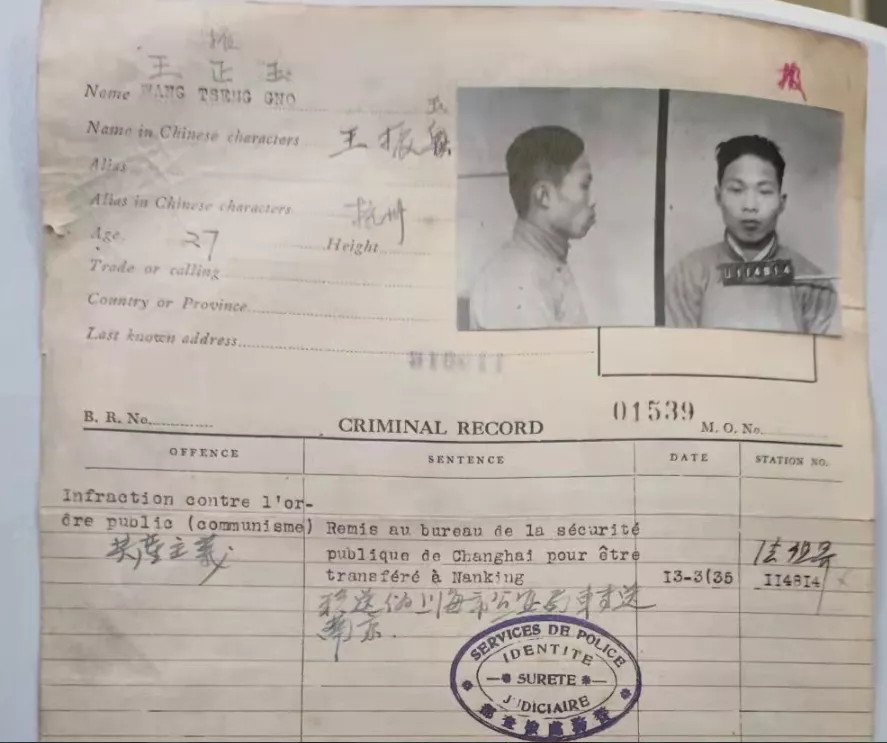 王 正 玉
Name WANG TSENG GNO
Name in Chinese characters 王振
Alias
Alias in Chinese characters 杭州
Age 27 Height
Trade or calling
Country or Province
Last known address
B. R. No. CRIMINAL RECORD 01539 M. O. No.
OFFENCE SENTENCE DATE STATION NO.
Infraction contre l'or-
dre public (communisme) Remis au bureau de la sécurité
共产主义 publique de Changhai pour être
transféré à Nanking 13-3(35 114814
移送 上海市公安局 送
南京.
SERVICES DE POLICE
IDENTITE
SURETE
JUDICIAIRE